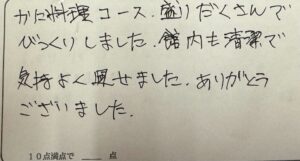 かに料理コース．盛りだくさんで
びっくりしました．館内も清潔で
気持よく過せました．ありがとう
ございました．
10点満点で ____ 点